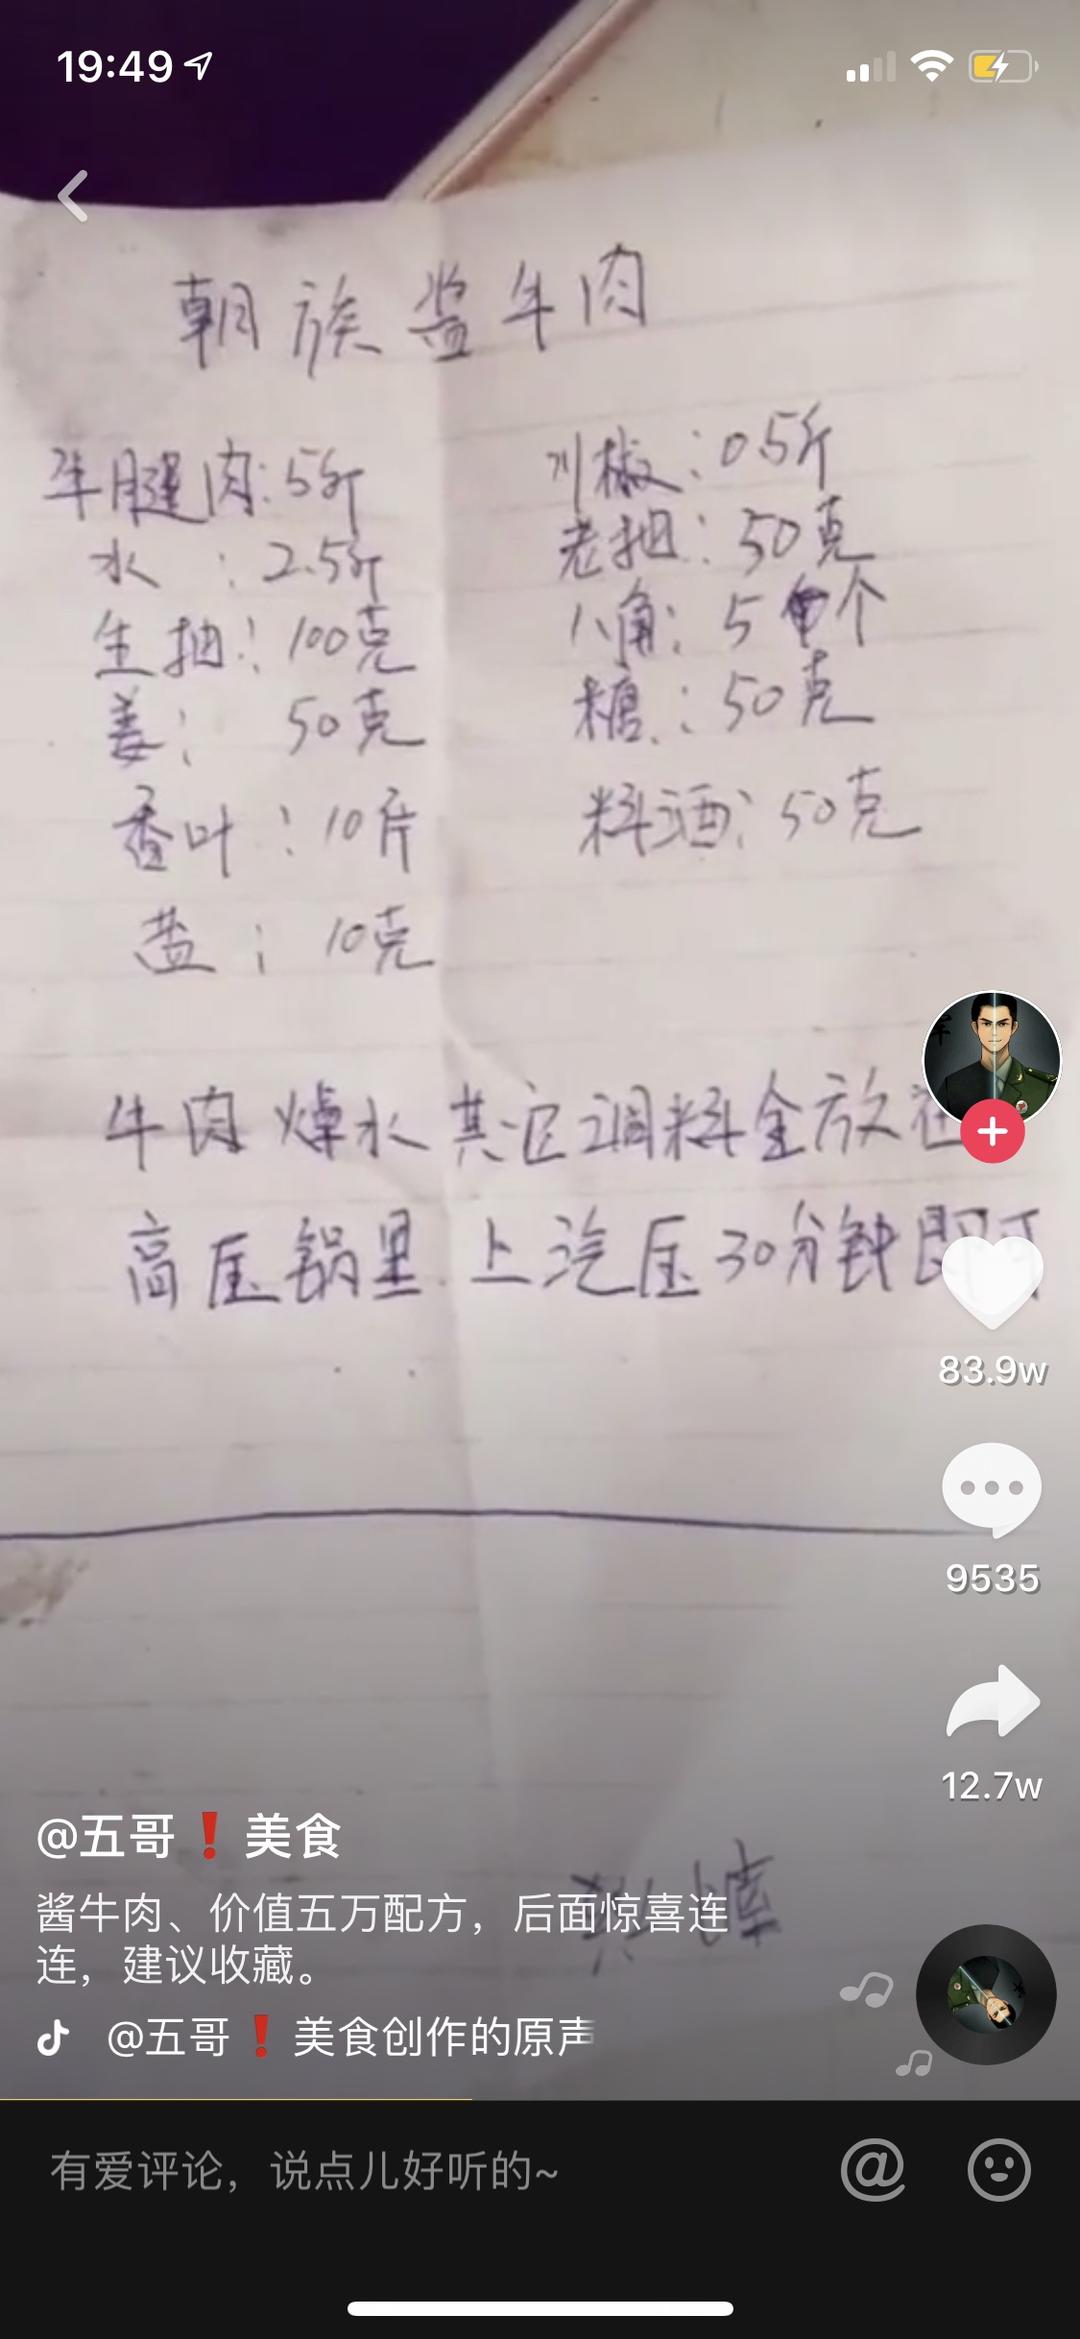 19:49
朝族酱牛肉
牛腱肉:5斤
水:2.5斤
生抽:100克
姜:50克
香叶:10片
盐:10克
川椒:0.5斤
老抽:50克
八角:5个
糖:50克
料酒:50克
牛肉焯水其它调料全放在
高压锅里.上汽压30分钟即可
83.9w
9535
12.7w
@五哥❗美食
酱牛肉、价值五万配方，后面惊喜连
连，建议收藏。
@五哥❗美食创作的原声
有爱评论，说点儿好听的~